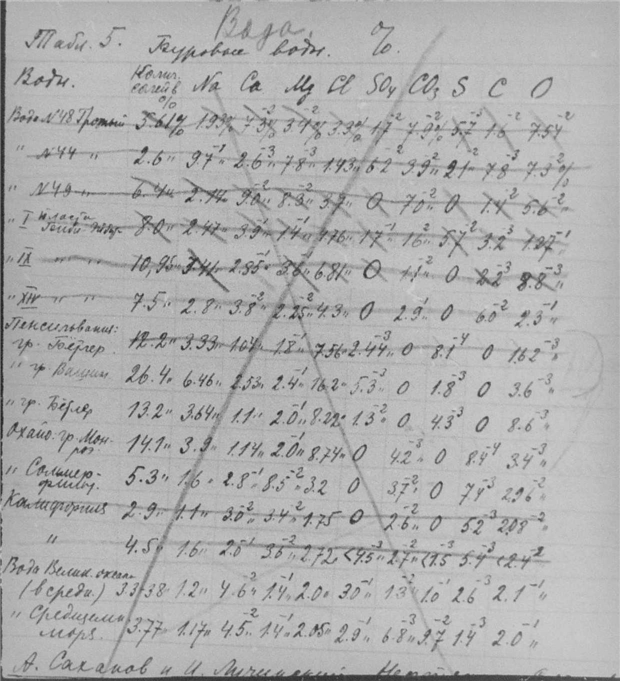 Вода.
Табл. 5. Буровые воды. %.
Воды. Колич. солей в % Na Ca Mg Cl SO4 CO3 S C O
Вода N48 Грозный 5.61% 1.93% 7.3⁻³% 3.4⁻²% 3.3% 1.7⁻² 7.9⁻²% 5.7⁻² 1.6⁻² 7.54⁻²
" N44 " 2.6" 9.7⁻¹" 2.6⁻³" 7.8⁻³" 1.43" 6.2⁻² 3.9⁻² 2.1⁻² 7.8⁻³ 7.3⁻²%
" N49 " 6.4" 2.14" 9.0⁻²" 8.3⁻²" 3.9" 0 7.0⁻²" 0 1.4⁻² 5.6⁻²"
" I 8.0" 2.47" 3.9⁻¹" 1.4⁻¹" 4.76" 1.7⁻¹" 1.6⁻² 5.7⁻² 3.2⁻³ 1.27⁻¹"
" IX " " 10,95" 3.41" 2.85⁻¹" 3.6⁻¹" 6.81" 0 1.1⁻² 0 2.2⁻³ 8.8⁻³"
" XIV " " 7.5" 2.8" 3.8⁻²" 2.25⁻²" 4.3" 0 2.9⁻¹ 0 6.0⁻² 2.3⁻¹"
Пенсильвания:
гр. Бёргер 12.2" 3.33" 1.04" 1.8⁻¹" 7.56" 2.44⁻³" 0 8.1⁻⁴ 0 1.62⁻³"
" гр. 26.4" 6.46" 2.53" 2.4⁻¹" 16.2" 5.3⁻³" 0 1.8⁻³ 0 3.6⁻³"
" гр. 13.2" 3.64" 1.1" 2.0⁻¹" 8.22" 1.3⁻² 0 4.3⁻³ 0 8.6⁻³"
Охайо: гр. Мон-
роз 14.1" 3.9" 1.14" 2.0⁻¹" 8.74" 0 4.2⁻³ 0 8.4⁻⁴ 3.4⁻³"
" Соммер-
фильд. 5.3" 1.6" 2.8⁻¹" 8.5⁻²" 3.2 0 3.7⁻² 0 7.4⁻³ 2.96⁻²"
Калифорния 2.9" 1.1" 3.0⁻²" 3.4⁻²" 1.75 0 2.6⁻²" 0 5.2⁻³ 2.08⁻²"
" 4.5" 1.6" 2.0⁻¹" 3.6⁻²" 2.72 <4.5⁻³" 2.7⁻²" <1.5⁻³ 5.4⁻³ <2.4⁻²
Вода Велик. океана
(в средн.) 3.3-3.8" 1.2" 4.6⁻²" 1.4⁻¹" 2.0" 3.0⁻¹" 1.3⁻² 1.0⁻¹ 2.6⁻³ 2.1⁻¹"
" Средиземн.
моря. 3.77" 1.17" 4.5⁻²" 1.4⁻¹" 2.05" 2.9⁻¹" 6.8⁻³" 9.7⁻² 1.4⁻³ 2.0⁻¹"
А. Саханов и